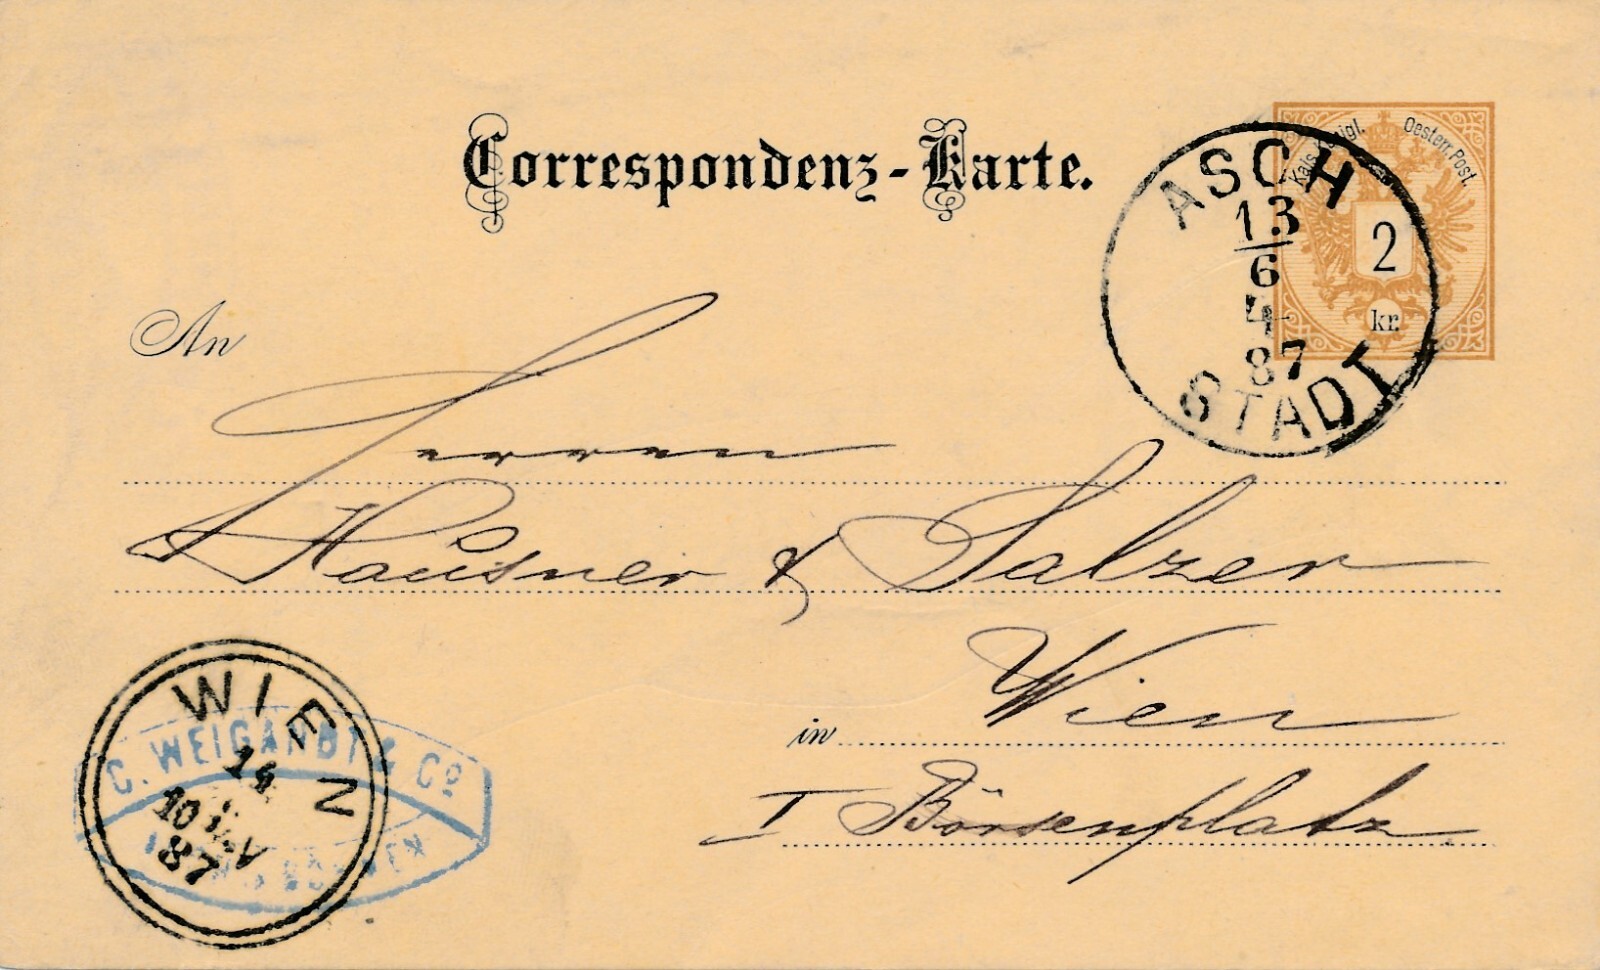 Correspondenz-Karte.
Oesterr. Post.
2
kr.
ASCH
13
6
4
87
STADT
An
Herren
Hausner & Salzer
in Wien
I Börsenplatz
WIEN
14
10
87
C. WEIGANDT & Co